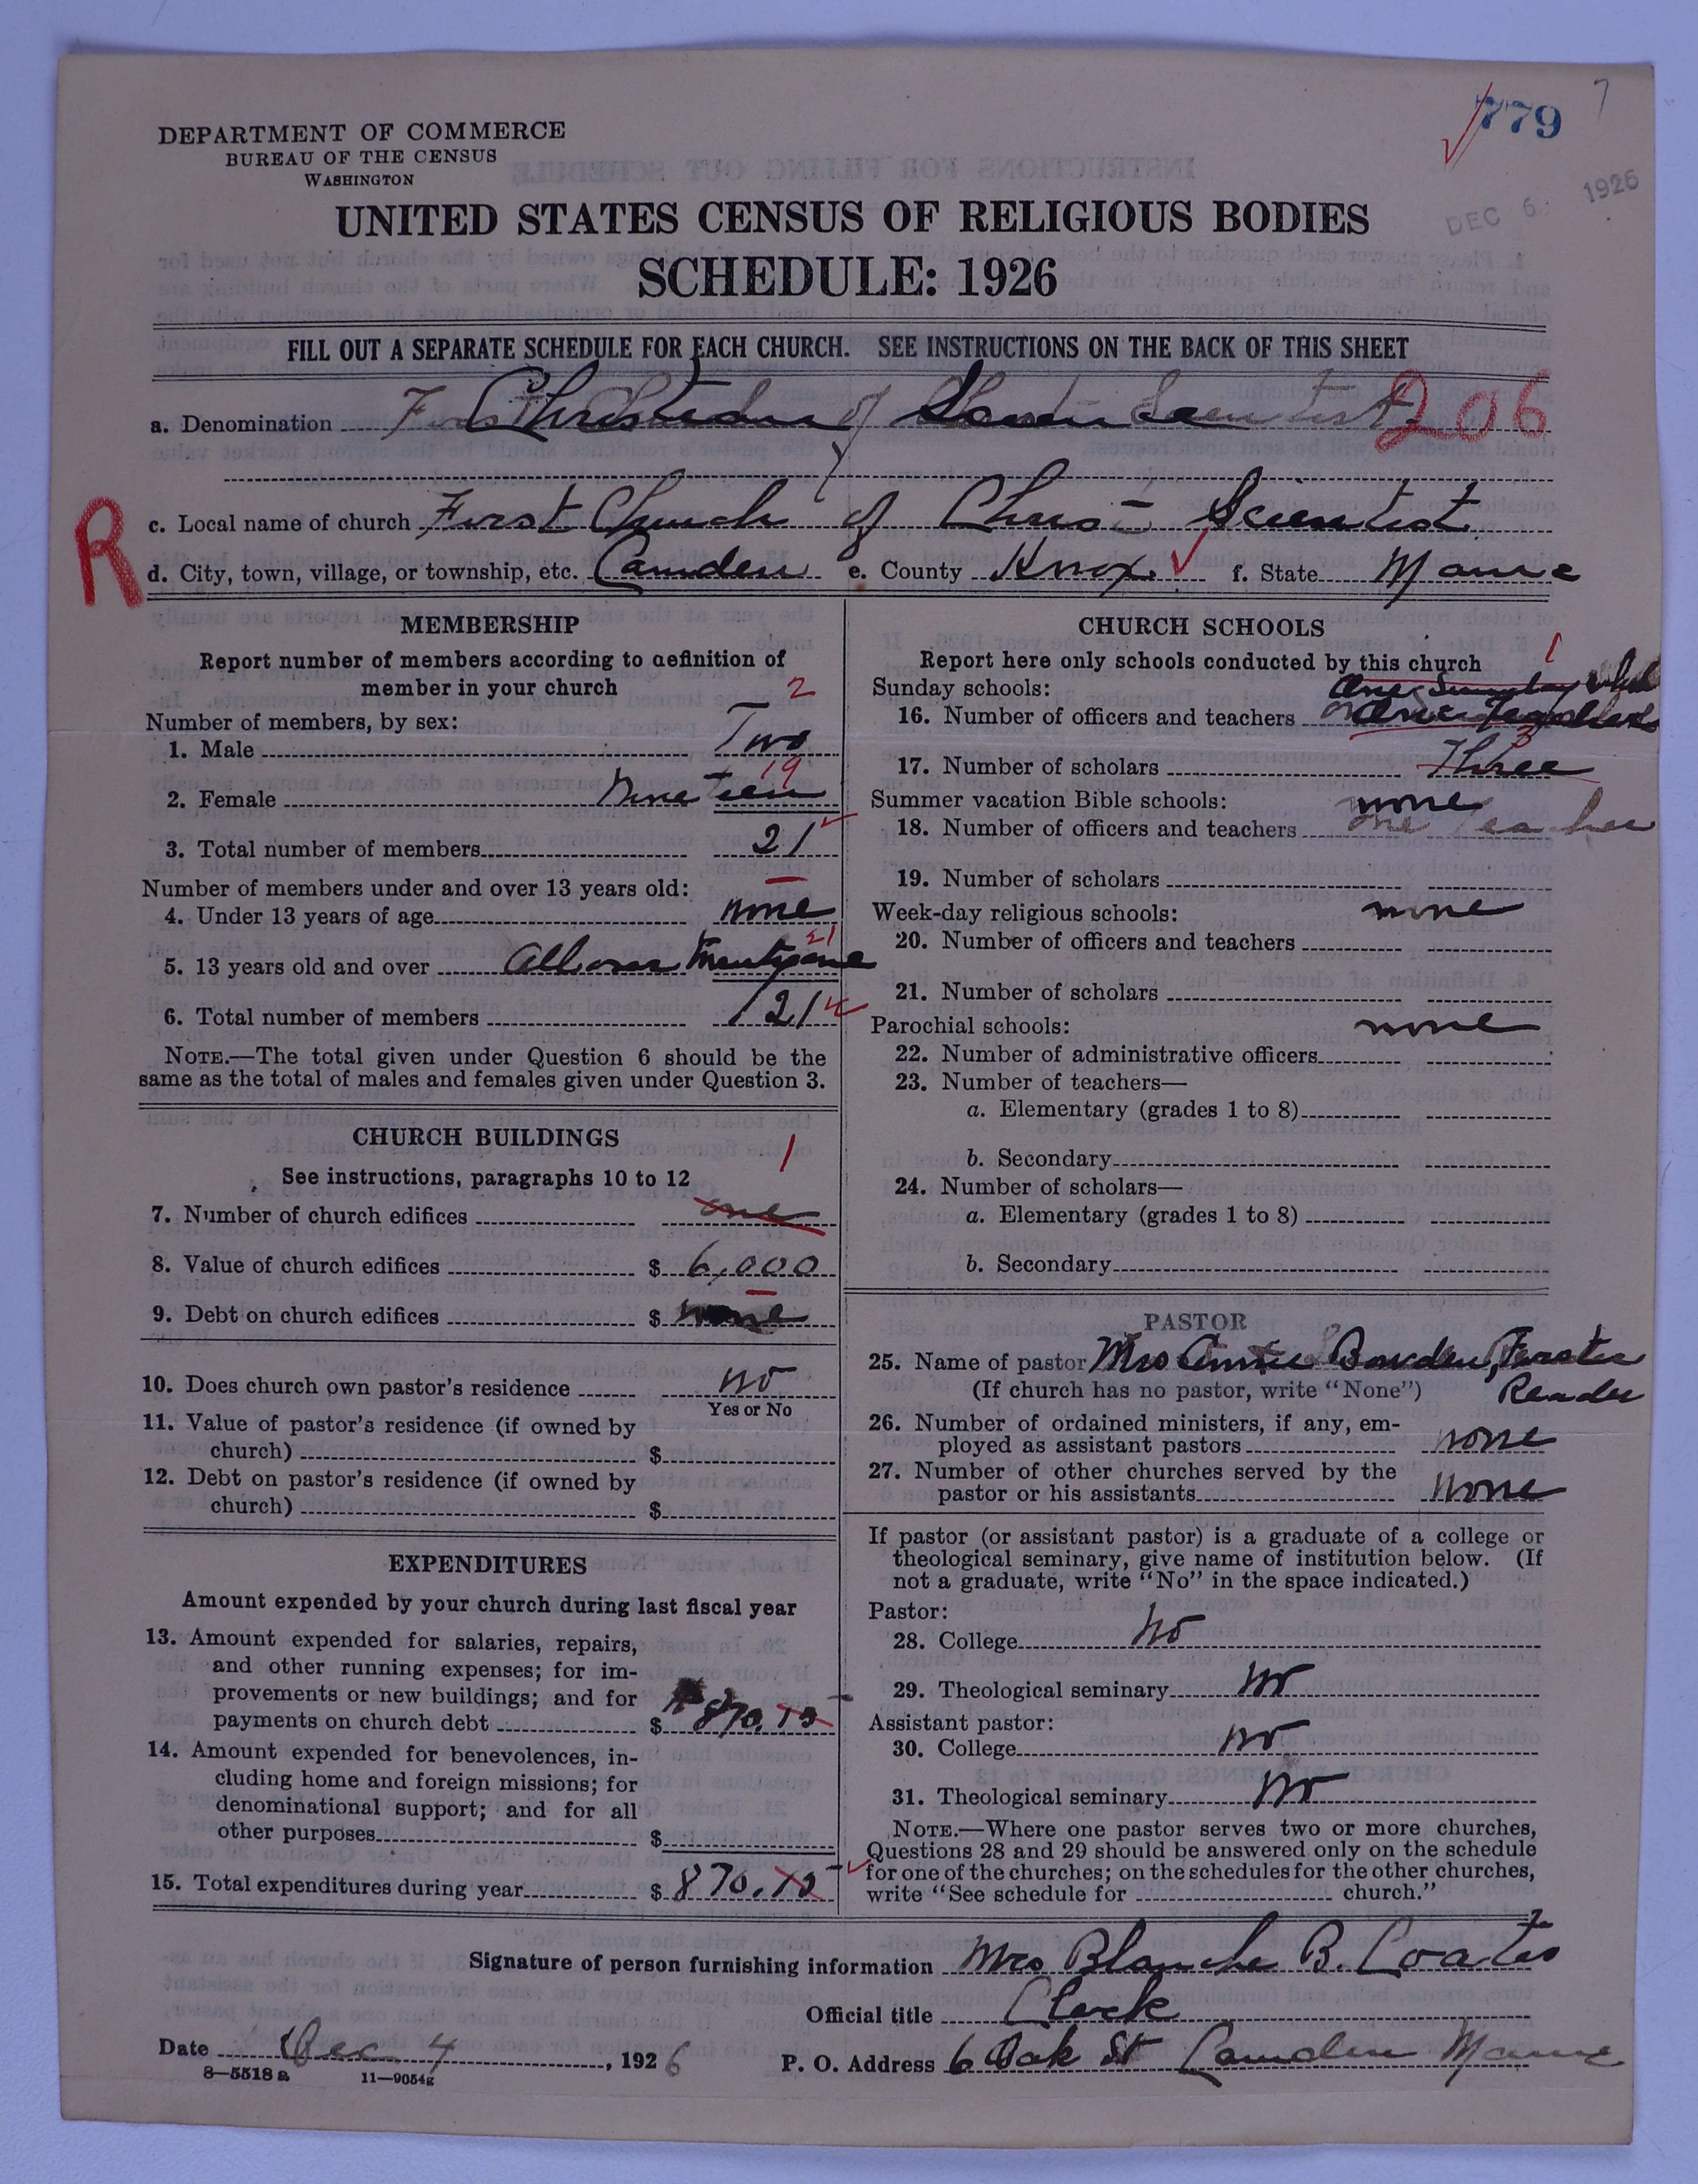 779
7
DEPARTMENT OF COMMERCE
BUREAU OF THE CENSUS
WASHINGTON
DEC 6 1926
UNITED STATES CENSUS OF RELIGIOUS BODIES
SCHEDULE: 1926
FILL OUT A SEPARATE SCHEDULE FOR EACH CHURCH. SEE INSTRUCTIONS ON THE BACK OF THIS SHEET
a. Denomination Christian 206
R
c. Local name of church First Church of Christ Scientist
d. City, town, village, or township, etc. Camden e. County Knox f. State Maine
MEMBERSHIP
Report number of members according to definition of
member in your church
2
Number of members, by sex:
1. Male Two
19
2. Female Nineteen
3. Total number of members 21
Number of members under and over 13 years old:
4. Under 13 years of age none
21
5. 13 years old and over All over Twenty one
6. Total number of members 21
NOTE.—The total given under Question 6 should be the
same as the total of males and females given under Question 3.
CHURCH BUILDINGS
See instructions, paragraphs 10 to 12
1
7. Number of church edifices one
8. Value of church edifices $ 6,000
9. Debt on church edifices $ none
10. Does church own pastor's residence no
Yes or No
11. Value of pastor's residence (if owned by
church) $
12. Debt on pastor's residence (if owned by
church) $
EXPENDITURES
Amount expended by your church during last fiscal year
13. Amount expended for salaries, repairs,
and other running expenses; for im-
provements or new buildings; and for
payments on church debt $ 870.15
14. Amount expended for benevolences, in-
cluding home and foreign missions; for
denominational support; and for all
other purposes $
15. Total expenditures during year $ 870.15
CHURCH SCHOOLS
Report here only schools conducted by this church
1
Sunday schools: One Sunday
16. Number of officers and teachers
3
17. Number of scholars Three
Summer vacation Bible schools: none
18. Number of officers and teachers one teacher
19. Number of scholars
Week-day religious schools: none
20. Number of officers and teachers
21. Number of scholars
Parochial schools: none
22. Number of administrative officers
23. Number of teachers—
a. Elementary (grades 1 to 8)
b. Secondary
24. Number of scholars—
a. Elementary (grades 1 to 8)
b. Secondary
PASTOR
25. Name of pastor Mrs Annie Bowden,
(If church has no pastor, write "None") Reader
26. Number of ordained ministers, if any, em-
ployed as assistant pastors none
27. Number of other churches served by the
pastor or his assistants none
If pastor (or assistant pastor) is a graduate of a college or
theological seminary, give name of institution below. (If
not a graduate, write "No" in the space indicated.)
Pastor:
28. College no
29. Theological seminary no
Assistant pastor:
30. College no
31. Theological seminary no
NOTE.—Where one pastor serves two or more churches,
Questions 28 and 29 should be answered only on the schedule
for one of the churches; on the schedules for the other churches,
write "See schedule for church."
Signature of person furnishing information Mrs Blanche B. Coates
Official title Clerk
Date Dec 4, 1926
P. O. Address 6 Oak St Camden Maine
8—5518a 11—9054g